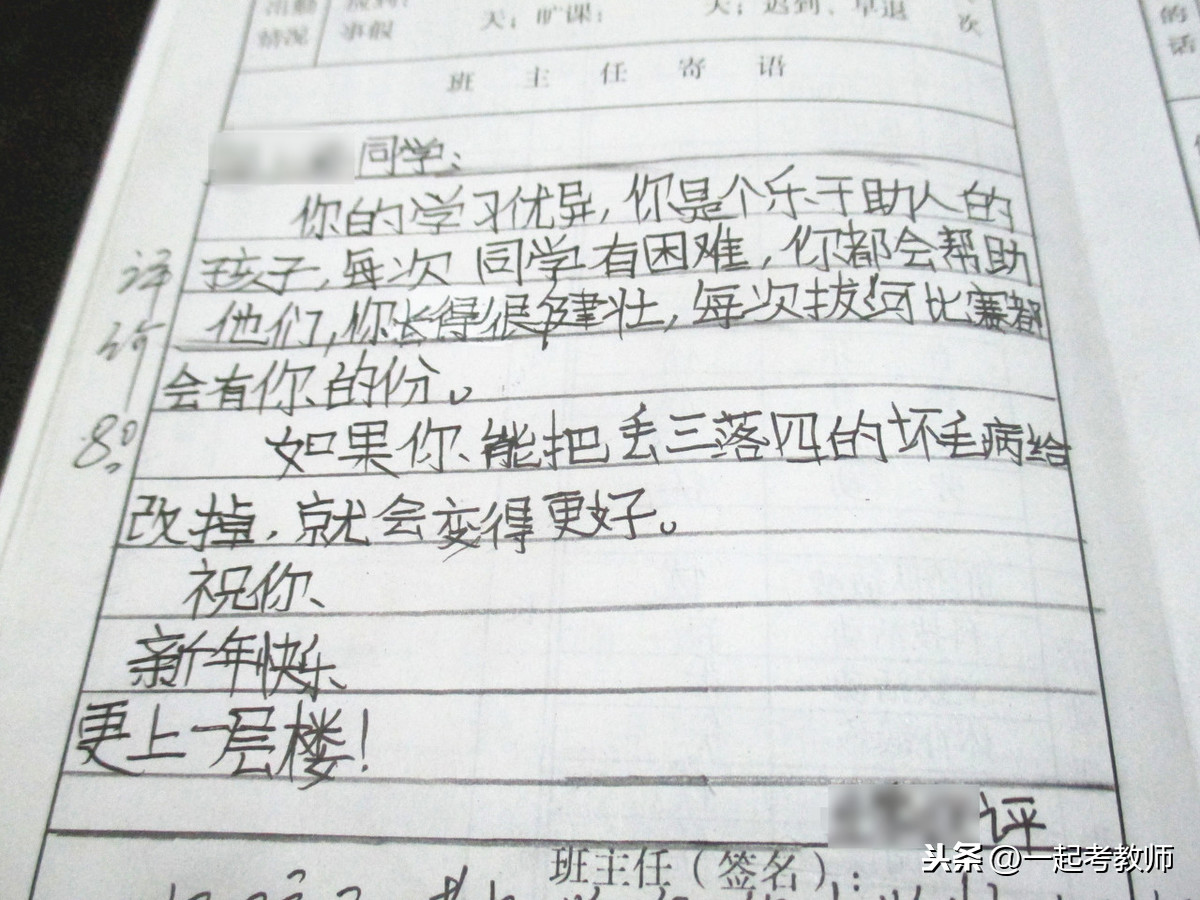 出勤
情况
事假
天；旷课：
天；迟到、早退
次
的
话
班主任寄语
同学：
你的学习优异，你是个乐于助人的
孩子，每次同学有困难，你都会帮助
他们，你长得很健壮，每次拔河比赛都
会有你的份。
如果你能把丢三落四的坏毛病给
改掉，就会变得更好。
祝你
新年快乐
更上一层楼！
评
评价
80
班主任（签名）：
头条@一起考教师